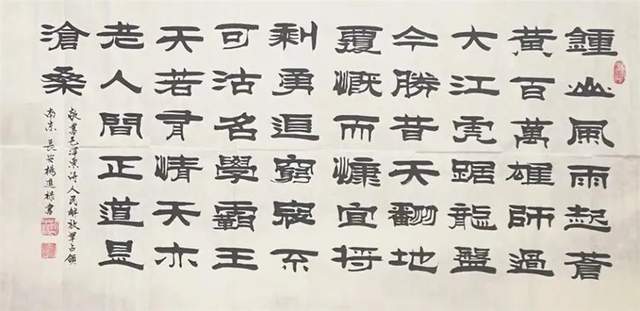 鍾山風雨起蒼
黃百萬雄師過
大江虎踞龍盤
今勝昔天翻地
覆慨而慷宜將
剩勇追窮寇不
可沽名學霸王
天若有情天亦
老人間正道是
滄桑
敬書毛澤東詩人民解放軍占領
南京 長安楊進祿書